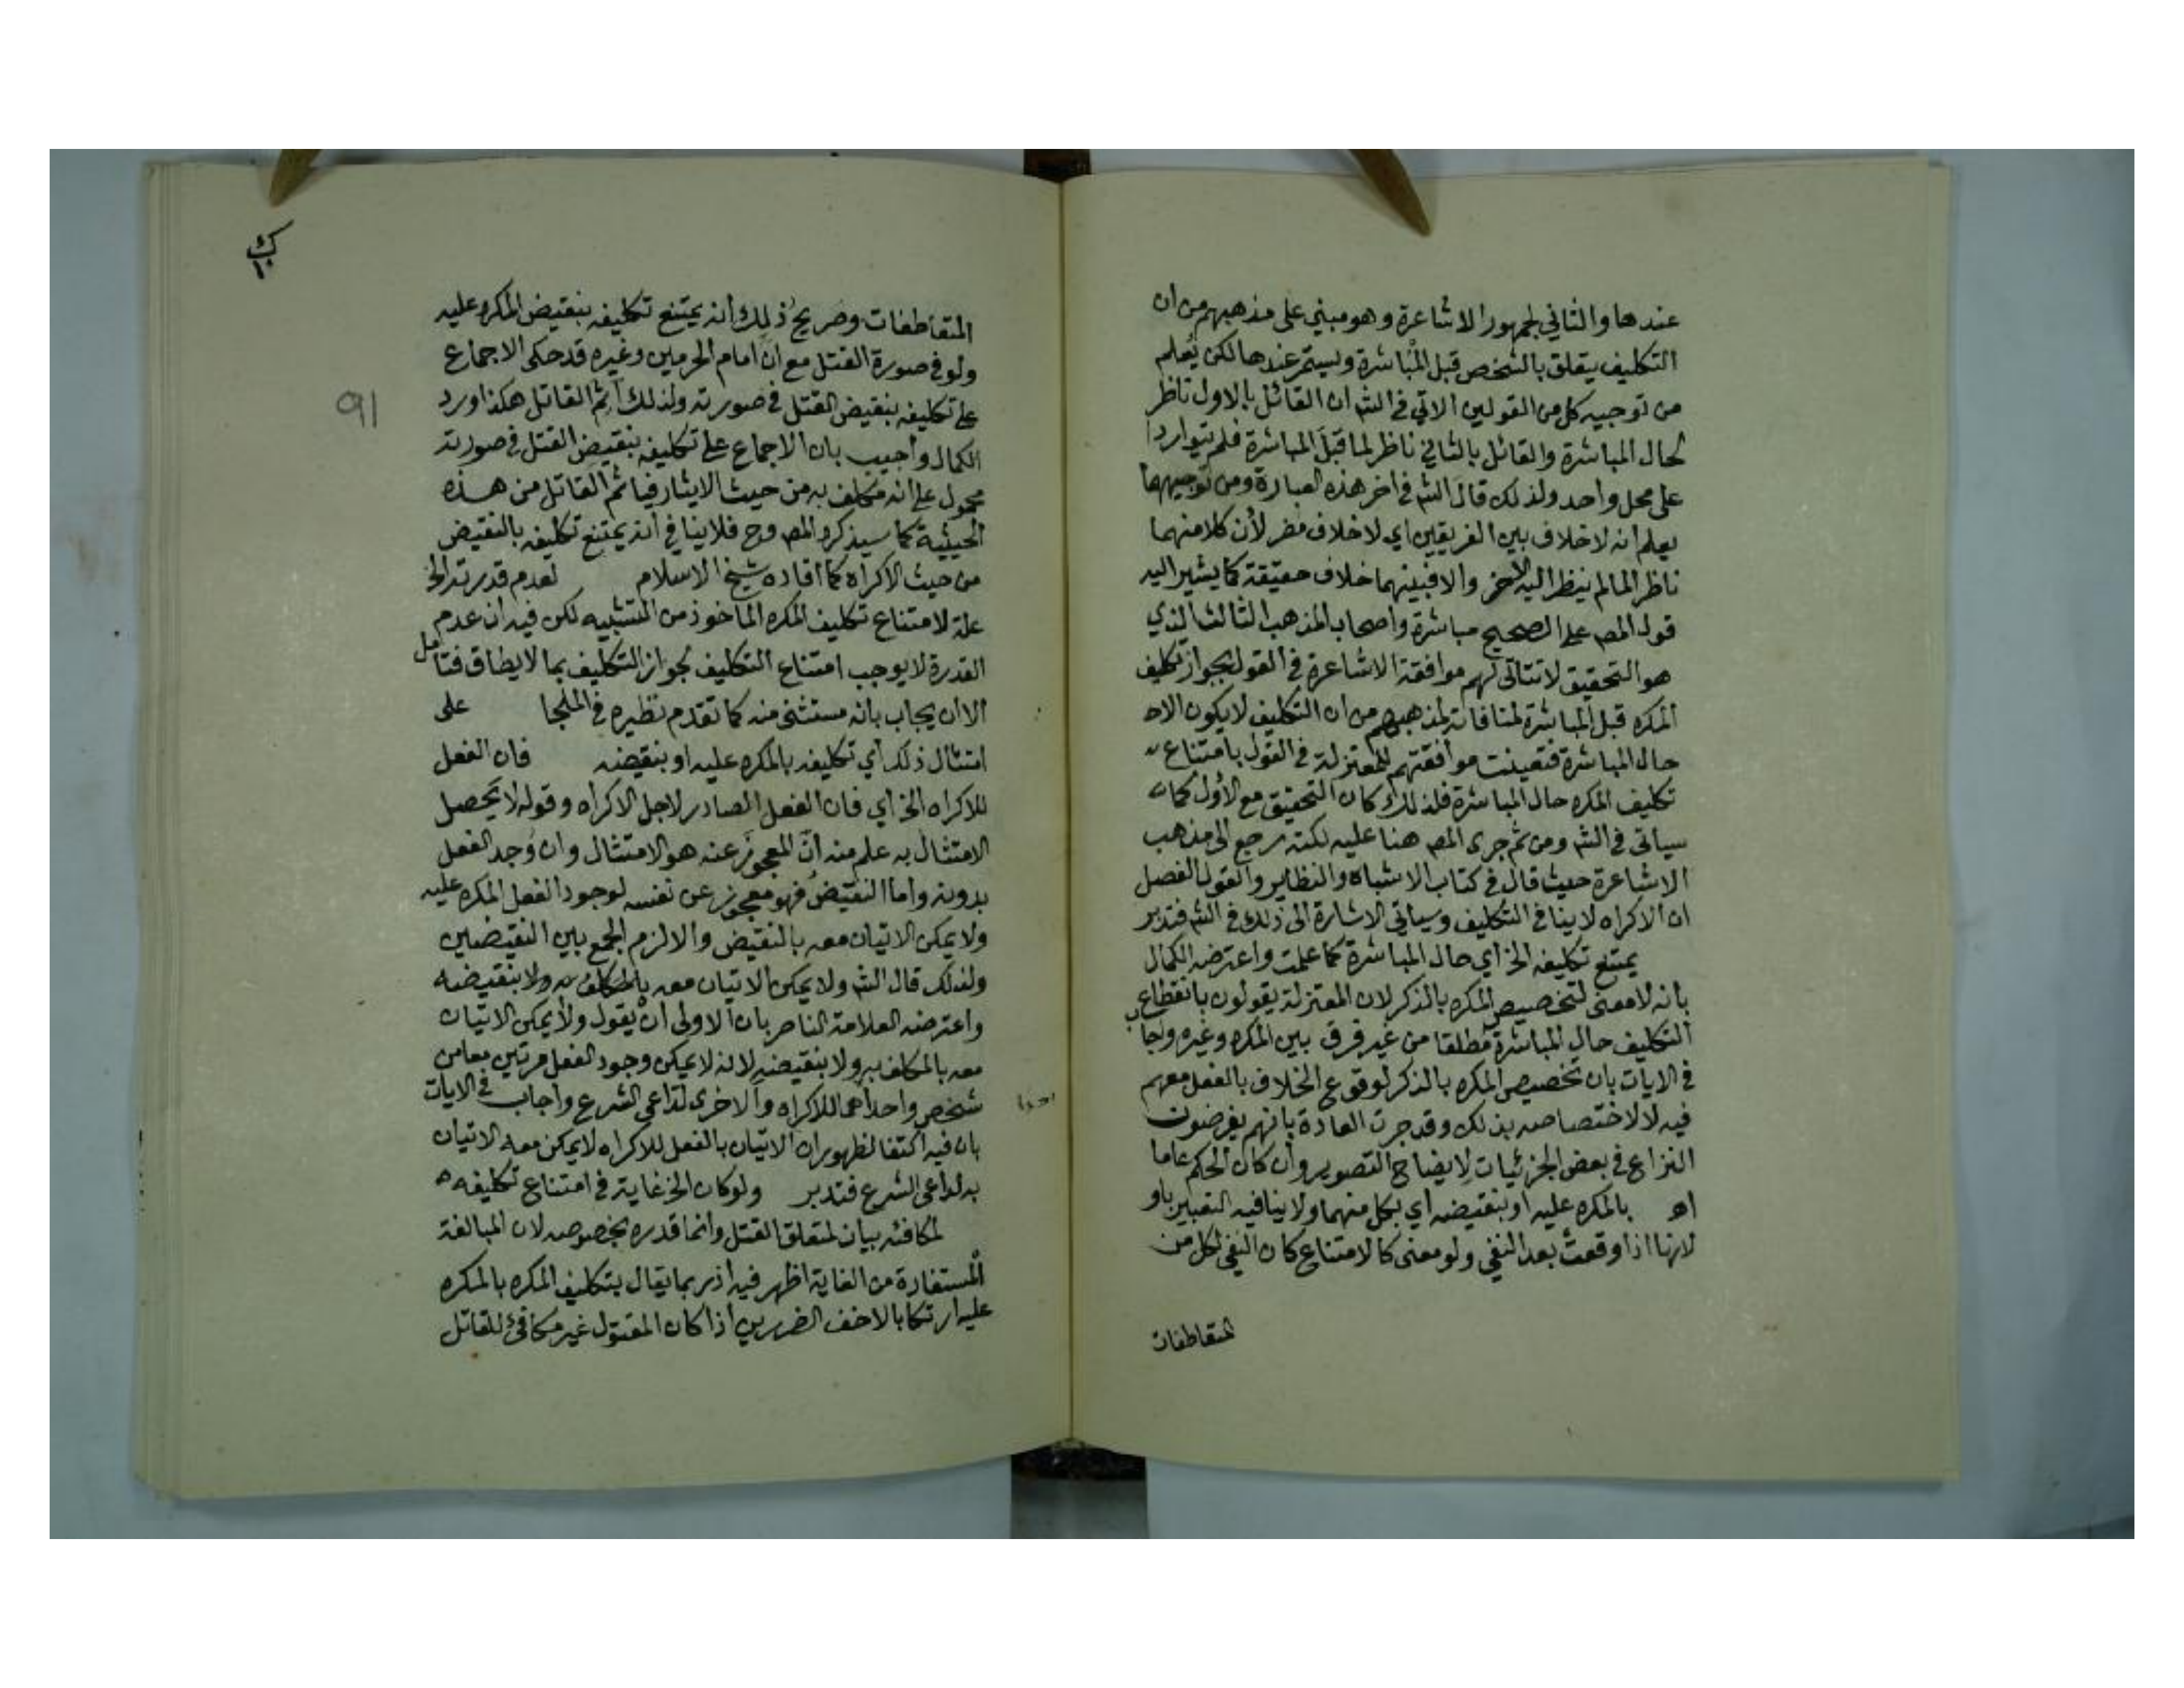 عندها والثاني لجمهور الاشاعرة وهو مبني على مذهبهم من ان
التكليف يتعلق بالشخص قبل المباشرة ويستمر عندها لكن يعلم
من توجيه كل من القولين الاتي في الشم ان القائل بالاول ناظر
لحال المباشرة والقائل بالثاني ناظر لما قبل المباشرة فلم يتواردا
على محل واحد ولذلك قال الشم في اخر هذه العبارة ومن توجيههما
يعلم انه لا خلاف بين الفريقين اي لا خلاف مضر لأن كلا منهما
ناظر لما لم ينظر اليه الاخر والا فبينهما خلاف حقيقة كما يشير اليه
قول المصـ على الصحيح مباشرة واصحاب المذهب الثالث الذي
هو التحقيق لا تتأتى لهم موافقة الاشاعرة في القول بجواز تكليف
المكره قبل المباشرة لمنافاته لمذهبهم من ان التكليف لا يكون الا
حال المباشرة فتعينت موافقتهم للمعتزلة في القول بامتناع
تكليف المكره حال المباشرة فلذلك كان التحقيق مع الأول كما
سياتى في الشم ومن ثم جرى المصـ هنا عليه لكنه رجع الى مذهب
الاشاعرة حيث قال في كتاب الاشباه والنظاير والقول الفصل
ان الاكراه لا ينافي التكليف وسياتي الاشارة الى ذلك في الشم فتدبر
يمتنع تكليفه الخ اي حال المباشرة كما علمت واعترضه الكمال
بانه لا معنى لتخصيص المكره بالذكر لان المعتزلة يقولون بانقطاع
التكليف حال المباشرة مطلقا من غير فرق بين المكره وغيره واجاب
في الايات بان تخصيص المكره بالذكر لوقوع الخلاف بالفعل معهم
فيه لا لاختصاصه بذلك وقد جرت العادة بانهم يفرضون
النزاع في بعض الجزئيات لايضاح التصوير وان كان الحكم عاما
اهـ بالمكره عليه او بنقيضه اي بكل منهما ولا ينافيه التعبير باو
لانها اذا وقعت بعد النفي ولو معنى كالامتناع كان النفي لكل من
المتعاطفات
ك ١٠
91
المتعاطفات وصريح ذلك أنه يمتنع تكليفه بنقيض المكره عليه
ولو في صورة القتل مع ان امام الحرمين وغيره قد حكى الاجماع
على تكليفه بنقيض القتل في صورته ولذلك أثم القاتل هكذا اورد
الكمال وأجيب بان الاجماع على تكليفه بنقيض القتل في صورته
محمول على انه مكلف به من حيث الايثار فيأثم القاتل من هذه
الحيثية كما سيذكره المصـ وح فلا ينافي أنه يمتنع تكليفه بالنقيض
من حيث الاكراه كما افاده شيخ الاسلام لعدم قدرته الخ
علة لامتناع تكليف المكره الماخوذ من التشبيه لكن فيه ان عدم
القدرة لا يوجب امتناع التكليف لجواز التكليف بما لا يطاق فتأمل
الا ان يجاب بانه مستثنى منه كما تقدم نظيره في الملجا على
امتثال ذلك أي تكليفه بالمكره عليه او بنقيضه فان الفعل
للاكراه الخ اي فان الفعل الصادر لاجل الاكراه وقوله لا يحصل
الامتثال به علم منه أنّ المعجوز عنه هو الامتثال وان وُجد الفعل
بدونه واما النقيض فهو معجوز عن نفسه لوجود الفعل المكره عليه
ولا يمكن الاتيان معه بالنقيض والا لزم الجمع بين النقيضين
ولذلك قال الشم ولا يمكن الاتيان معه بالمكلف به ولا بنقيضه
واعترضه العلامة الناصر بان الاولى ان يقول ولا يمكن الاتيان
معه بالمكلف به ولا بنقيضه لانه لا يمكن وجود الفعل مرتين معا من
شخص واحد احداهما للاكراه والاخرى لداعي الشرع واجاب في الايات
بان فيه اكتفا لظهور ان الاتيان بالفعل للاكراه لا يمكن معه الاتيان
به لداعي الشرع فتدبر ولو كان الخ غاية في امتناع تكليفه
لمكافئه بيان لمتعلق القتل وانما قدره بخصوصه لان المبالغة
المستفادة من الغاية اظهر فيه اذ ربما يقال بتكليف المكره بالمكره
عليه ارتكابا لاخف الضررين اذا كان المقتول غير مكافئ للقاتل